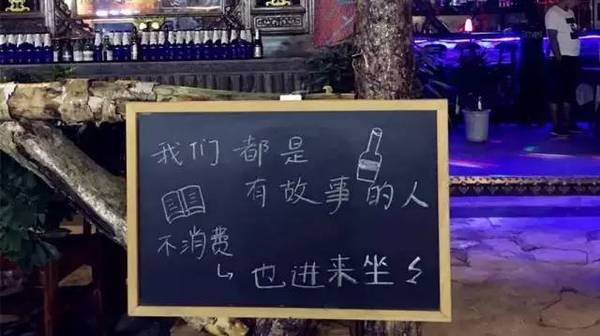 我们都是
有故事的人
不消费
也进来坐